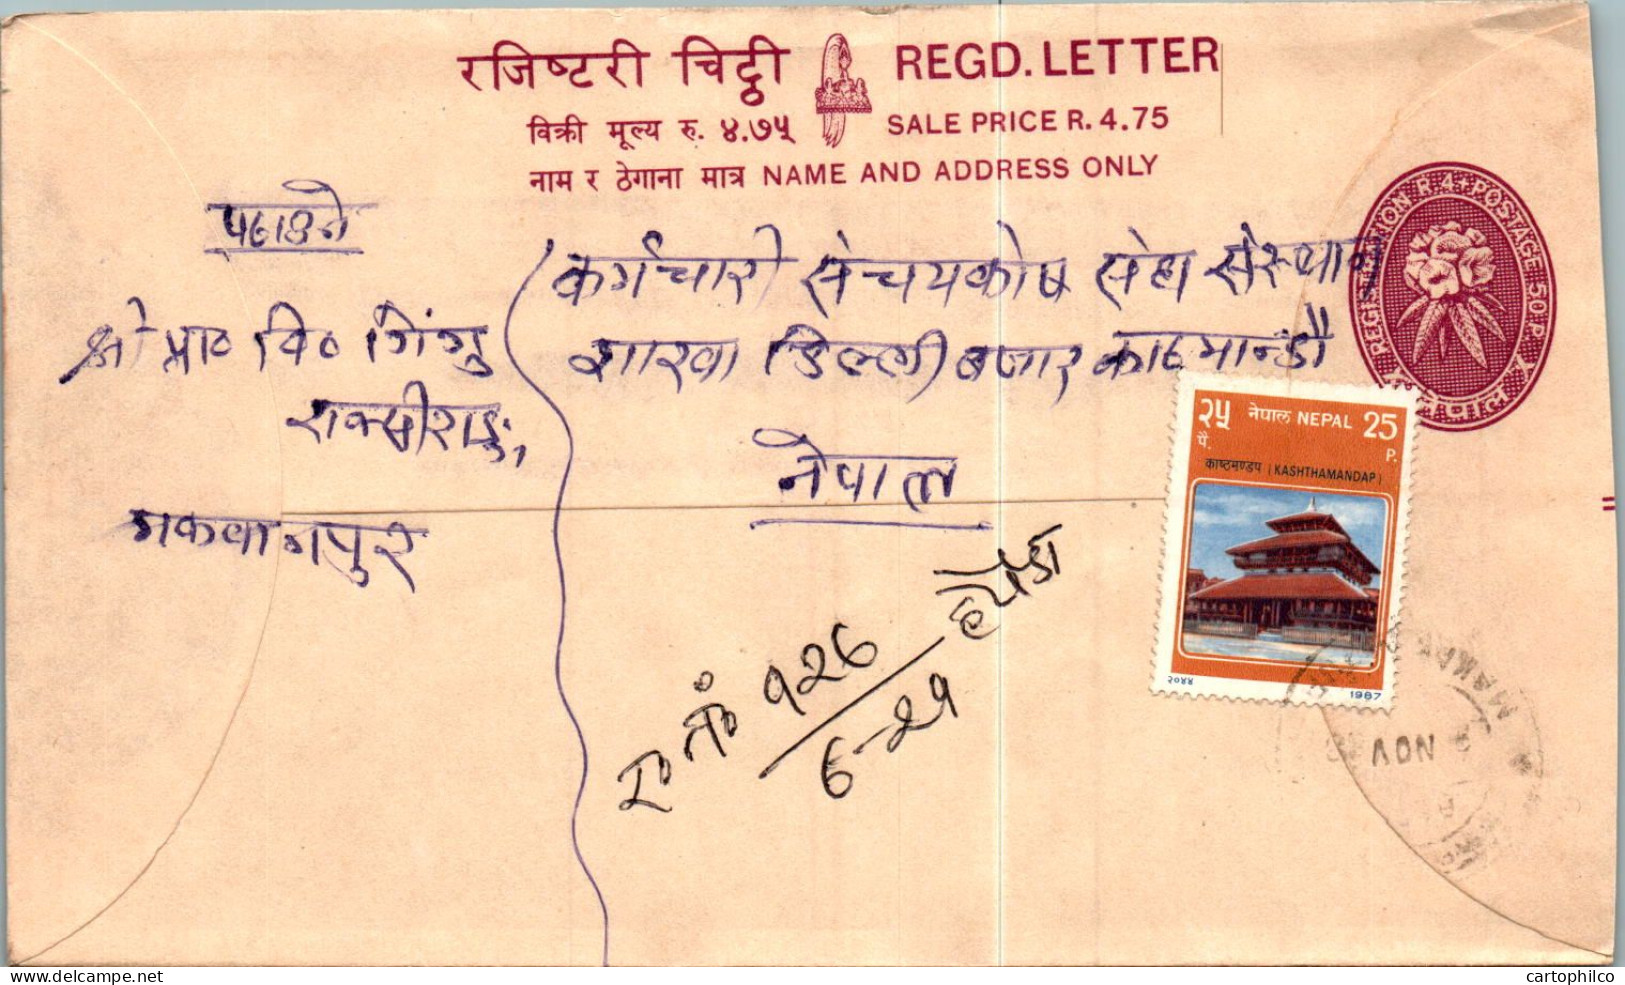 रजिष्टरी चिट्ठी REGD. LETTER
विक्री मूल्य रु. ४.७५ SALE PRICE R. 4.75
नाम र ठेगाना मात्र NAME AND ADDRESS ONLY
REGISTRATION R.4+POSTAGE-50 P.
नेपाल
पठाउने
श्री प्रा० वि०
मकवानपुर
कर्मचारी संचयकोष सेवा संस्थान
शाखा डिल्ली बजार काठमान्डौ
नेपाल
र० नं० १२६
6-29
२५ नेपाल NEPAL 25
पै. P.
काष्ठमण्डप (KASHTHAMANDAP)
२०४४ 1987
NOV
cartophilco